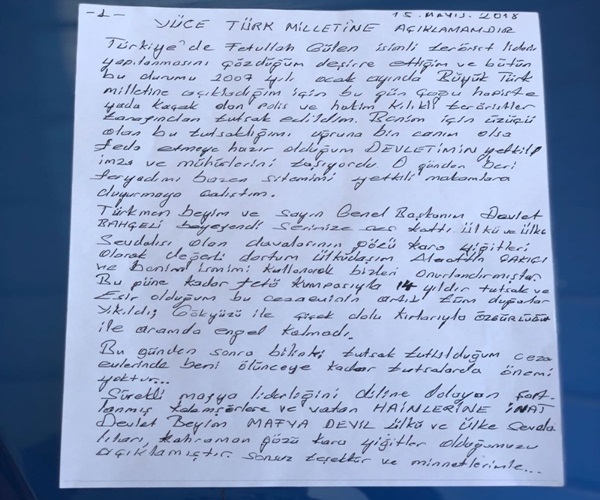 -1-
15. MAYIS. 2018
YÜCE TÜRK MİLLETİNE AÇIKLAMAMDIR
Türkiye'de Fetullah Gülen isimli terörist lideri
yapılanmasını çözdüğüm deşifre ettiğim ve bütün
bu durumu 2007 yılı ocak ayında Büyük Türk
milletine açıkladığım için bu gün çoğu hapiste
yada kaçak olan polis ve hakim kılıklı teröristler
tarafından tutsak edildim. Benim için üzücü
olan bu tutsaklığımı uğruna bin canım olsa
feda etmeye hazır olduğum DEVLETİMİN yetkili
imza ve mühürlerini taşıyordu. O günden beri
feryadımı bazen sitemimi yetkili makamlara
duyurmaya çalıştım.
Türkmen beyim ve sayın Genel Başkanım Devlet
BAHÇELİ beyefendi sesimize ses kattı ülkü ve ülke
Sevdalısı olan davalarının gözü kara yiğitleri
olarak değerli dostum ülküdaşım Alaattin ÇAKICI
ve benim ismimi kullanarak bizleri onurlandırmıştır.
Bu güne kadar fetö kumpasıyla 14 yıldır tutsak ve
Esir olduğum bu cezaevinin artık tüm duvarları
yıkıldı; Gökyüzü ile çiçek dolu kırlarıyla özgürlüğüm
ile aramda engel kalmadı.
Bu günden sonra bilinki tutsak tutulduğum ceza
evlerinde beni ölünceye kadar tutsalarda önemi
yoktur...
Sürekli mafya liderliğini diline dolayan şart-
lanmış ve vatan HAİNLERİNE İNAT
Devlet Beyim MAFYA DEĞİL ülkü ve ülke Sevda-
lıları, kahraman gözü kara yiğitler olduğumuzu
açıklamıştır. sonsuz teşekkür ve minnetlerimle...